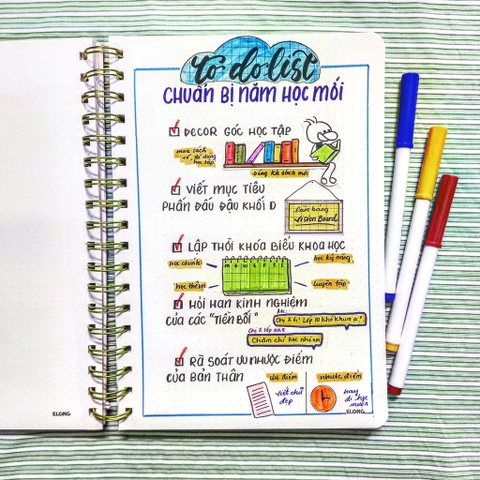 to do list
CHUẨN BỊ NĂM HỌC MỚI
DECOR GÓC HỌC TẬP
mua sách
vở, đồ dùng
học tập
Đóng kệ sách mới
VIẾT MỤC TIÊU
PHẤN ĐẤU ĐẬU KHỐI D
Làm bảng
Vision Board
LẬP THỜI KHÓA BIỂU KHOA HỌC
Học chính
học kỹ năng
M T W T F S S
học thêm
luyện tập
HỎI HAN KINH NGHIỆM
CỦA CÁC "TIỀN BỐI"
Me:
Chị X ơi! Lớp 10 khó khum ạ?
Chị X lớp
Chăm chỉ học nhiêm
RÃ SOÁT ƯU NHƯỢC ĐIỂM
CỦA BẢN THÂN
ưu điểm
nhược điểm
viết chữ
đẹp
hay
đi học
muộn
KLONG
KLONG